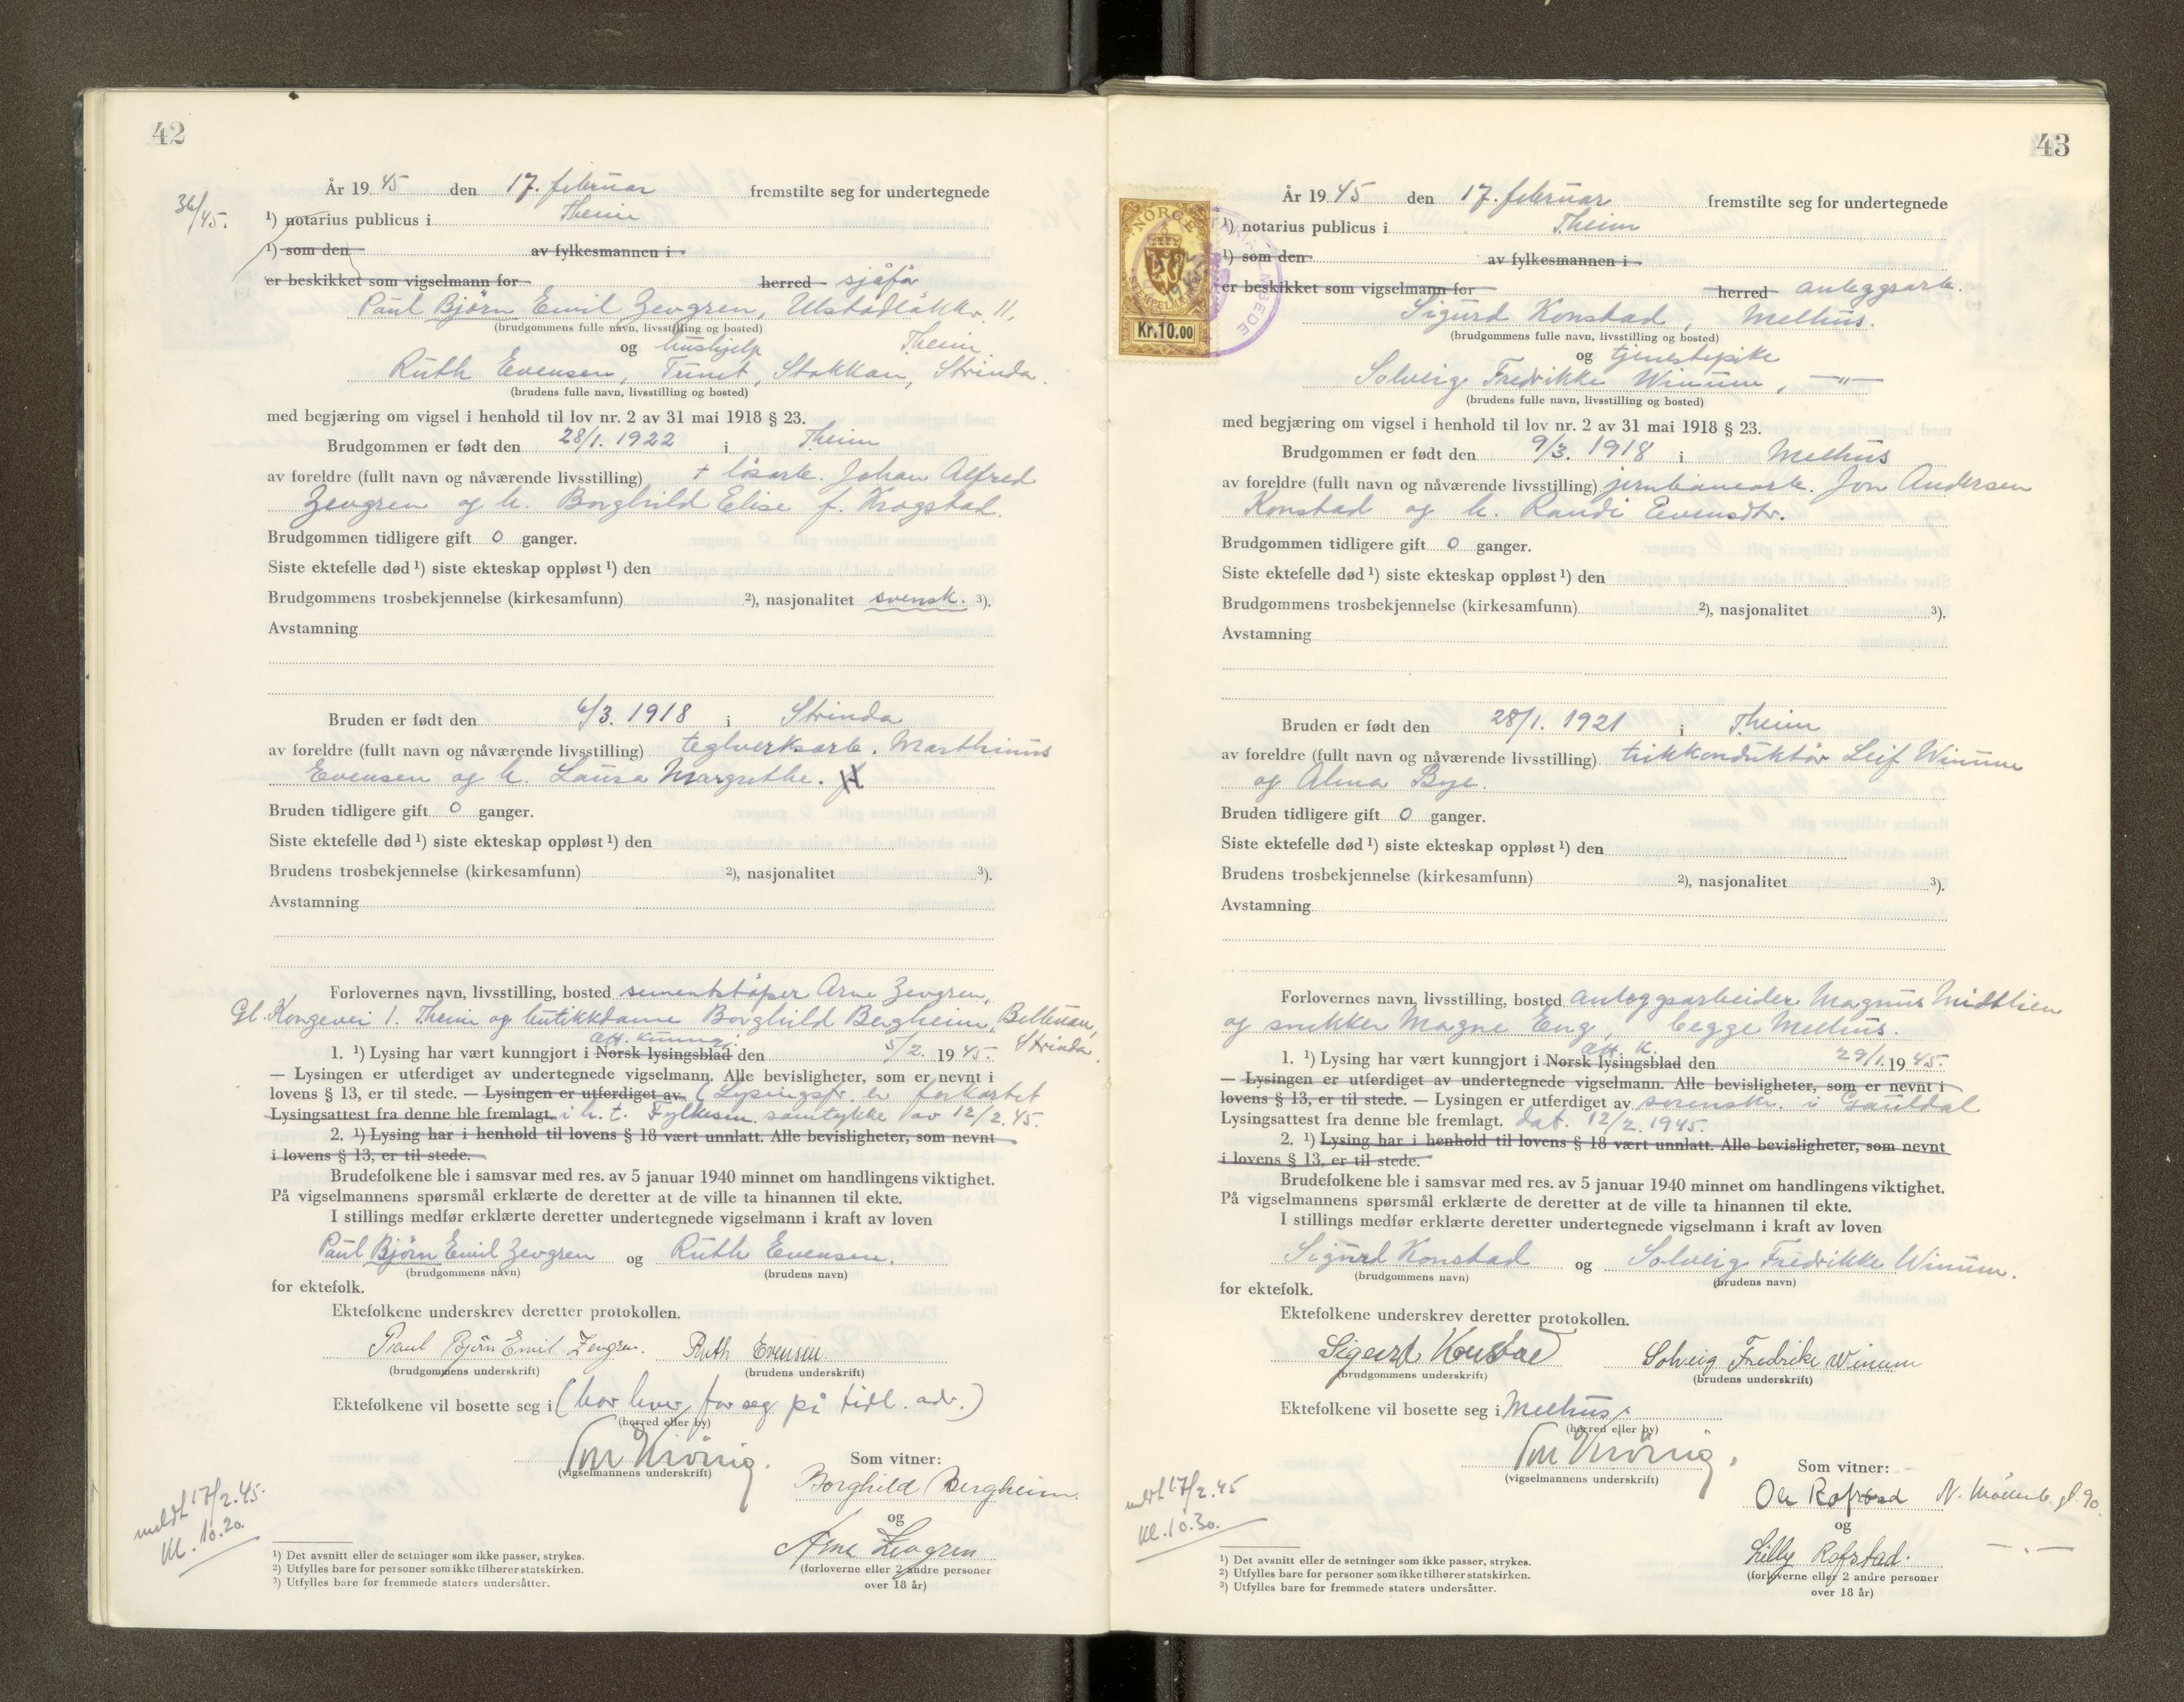 42
36/45.
År 19 45 den 17. februar fremstilte seg for undertegnede
¹) notarius publicus i Theim
¹) som den av fylkesmannen i
er beskikket som vigselmann for herred sjåfør
Paul Bjørn Emil Zevgren, Ulstadløkkv. 11,
(brudgommens fulle navn, livsstilling og bosted)
og hushjelp Theim
Ruth Evensen, Tunet, Stokkan, Strinda.
(brudens fulle navn, livsstilling og bosted)
med begjæring om vigsel i henhold til lov nr. 2 av 31 mai 1918 § 23.
Brudgommen er født den 28/1. 1922 i Theim
av foreldre (fullt navn og nåværende livsstilling) + løsarb. Johan Alfred
Zevgren og h. Borghild Elise f. Krogstad.
Brudgommen tidligere gift 0 ganger.
Siste ektefelle død ¹) siste ekteskap oppløst ¹) den
Brudgommens trosbekjennelse (kirkesamfunn) ²), nasjonalitet svensk. ³).
Avstamning
Bruden er født den 6/3. 1918 i Strinda
av foreldre (fullt navn og nåværende livsstilling) teglverksarb. Marthinus
Evensen og h. Laura Margrethe.
Bruden tidligere gift 0 ganger.
Siste ektefelle død ¹) siste ekteskap oppløst ¹) den
Brudens trosbekjennelse (kirkesamfunn) ²), nasjonalitet ³).
Avstamning
Forlovernes navn, livsstilling, bosted sementstøper Arne Zevgren,
Gl. Kongevei 1. Theim og butikkdame Borghild Bergheim, Belbuan,
Strinda.
off. kunng.
1. ¹) Lysing har vært kunngjort i Norsk lysingsblad den 5/2. 1945.
— Lysingen er utferdiget av undertegnede vigselmann. Alle bevisligheter, som er nevnt i
lovens § 13, er til stede. — Lysingen er utferdiget av (Lysingsfr. er forkortet
Lysingsattest fra denne ble fremlagt. i h. t. Fylkesm. samtykke av 12/2. 45.
2. ¹) Lysing har i henhold til lovens § 18 vært unnlatt. Alle bevisligheter, som nevnt
i lovens § 13, er til stede.
Brudefolkene ble i samsvar med res. av 5 januar 1940 minnet om handlingens viktighet.
På vigselmannens spørsmål erklærte de deretter at de ville ta hinannen til ekte.
I stillings medfør erklærte deretter undertegnede vigselmann i kraft av loven
Paul Bjørn Emil Zevgren og Ruth Evensen.
(brudgommens navn) (brudens navn)
for ektefolk.
Ektefolkene underskrev deretter protokollen.
Paul Bjørn Emil Zevgren. Ruth Evensen
(brudgommens underskrift) (brudens underskrift)
Ektefolkene vil bosette seg i (bor hver for seg på tidl. adr.)
(herred eller by)
(vigselmannens underskrift)
Som vitner:
Borghild Bergheim.
og
Arne Zevgren
(forloverne eller 2 andre personer
over 18 år)
meldt 17/2. 45.
kl. 10.20.
¹) Det avsnitt eller de setninger som ikke passer, strykes.
²) Utfylles bare for personer som ikke tilhører statskirken.
³) Utfylles bare for fremmede staters undersåtter.
43
NORGE
Kr.10.00
År 19 45 den 17. februar fremstilte seg for undertegnede
¹) notarius publicus i Theim
¹) som den av fylkesmannen i
er beskikket som vigselmann for herred anleggsarb.
Sigurd Konstad, Melhus.
(brudgommens fulle navn, livsstilling og bosted)
og tjenestepike
Solveig Fredrikke Winum, —"—
(brudens fulle navn, livsstilling og bosted)
med begjæring om vigsel i henhold til lov nr. 2 av 31 mai 1918 § 23.
Brudgommen er født den 9/3. 1918 i Melhus
av foreldre (fullt navn og nåværende livsstilling) jernbanearb. Jon Andersen
Konstad og h. Randi Evensdtr.
Brudgommen tidligere gift 0 ganger.
Siste ektefelle død ¹) siste ekteskap oppløst ¹) den
Brudgommens trosbekjennelse (kirkesamfunn) ²), nasjonalitet ³).
Avstamning
Bruden er født den 28/1. 1921 i Theim
av foreldre (fullt navn og nåværende livsstilling) trikkonduktør Leif Winum
og Alma Bye.
Bruden tidligere gift 0 ganger.
Siste ektefelle død ¹) siste ekteskap oppløst ¹) den
Brudens trosbekjennelse (kirkesamfunn) ²), nasjonalitet ³).
Avstamning
Forlovernes navn, livsstilling, bosted anleggsarbeider Magnus Midtlien
og snikker Magne Eng, begge Melhus.
off. k.
1. ¹) Lysing har vært kunngjort i Norsk lysingsblad den 29/1. 1945.
— Lysingen er utferdiget av undertegnede vigselmann. Alle bevisligheter, som er nevnt i
lovens § 13, er til stede. — Lysingen er utferdiget av sorenskr. i Gauldal
Lysingsattest fra denne ble fremlagt. dat. 12/2. 1945.
2. ¹) Lysing har i henhold til lovens § 18 vært unnlatt. Alle bevisligheter, som nevnt
i lovens § 13, er til stede.
Brudefolkene ble i samsvar med res. av 5 januar 1940 minnet om handlingens viktighet.
På vigselmannens spørsmål erklærte de deretter at de ville ta hinannen til ekte.
I stillings medfør erklærte deretter undertegnede vigselmann i kraft av loven
Sigurd Konstad og Solveig Fredrikke Winum.
(brudgommens navn) (brudens navn)
for ektefolk.
Ektefolkene underskrev deretter protokollen.
Sigurd Konstad Solveig Fredrike Winum
(brudgommens underskrift) (brudens underskrift)
Ektefolkene vil bosette seg i Melhus.
(herred eller by)
(vigselmannens underskrift)
Som vitner:
Ole Rofstad
og —"—
Lilly Rofstad.
(forloverne eller 2 andre personer
over 18 år)
meldt 17/2. 45
kl. 10.30.
¹) Det avsnitt eller de setninger som ikke passer, strykes.
²) Utfylles bare for personer som ikke tilhører statskirken.
³) Utfylles bare for fremmede staters undersåtter.